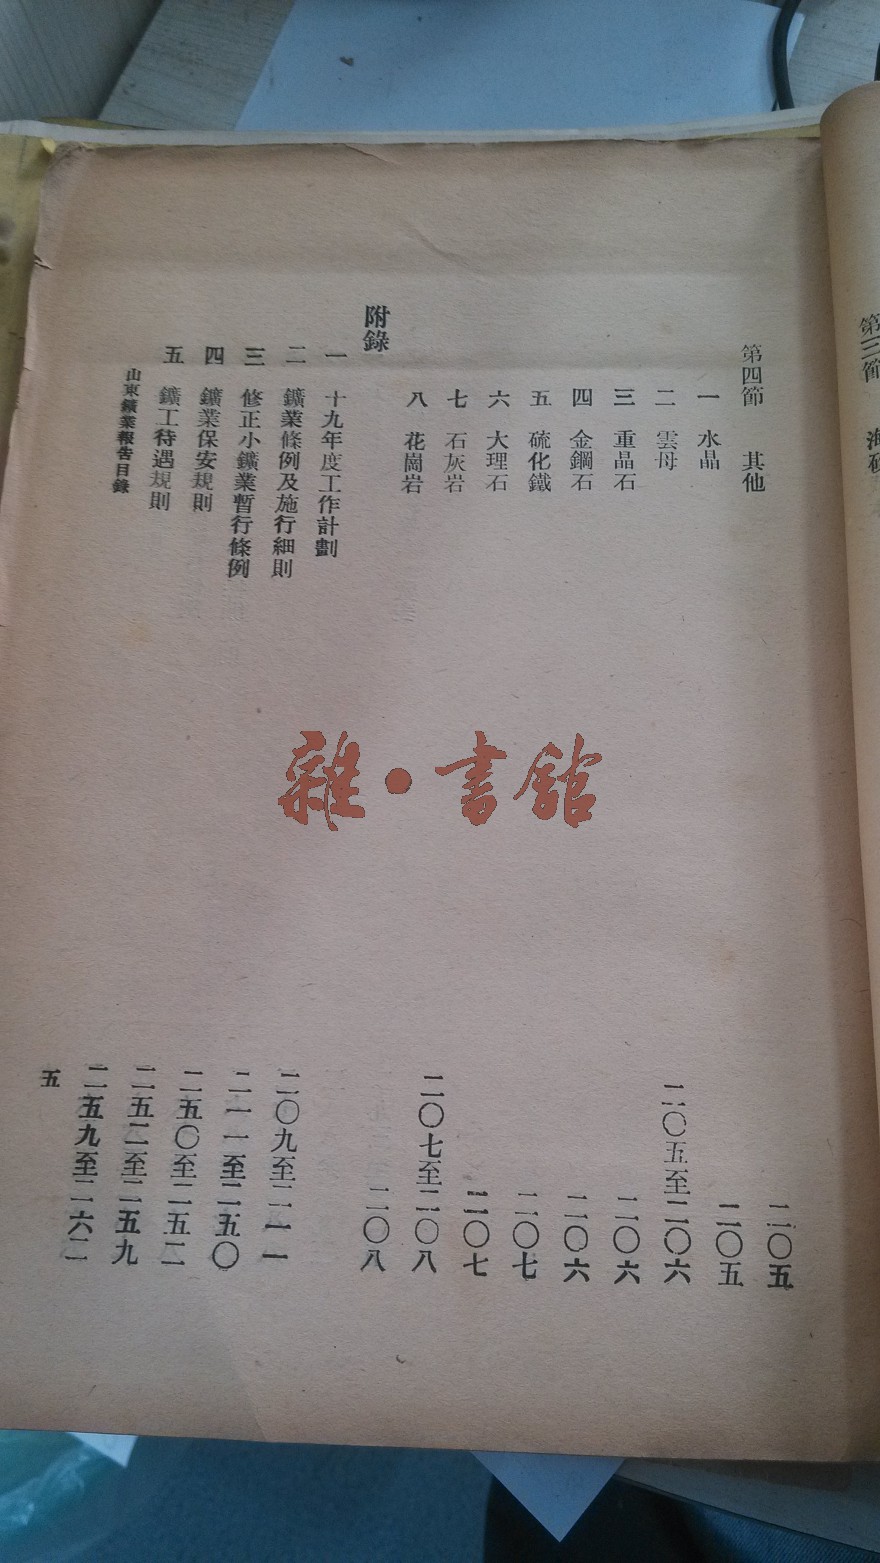 第三節
第四節 其他 二〇五
一 水晶 二〇五
二 雲母 二〇五至二〇六
三 重晶石 二〇六
四 金鋼石 二〇六
五 硫化鐵 二〇七
六 大理石 二〇七
七 石灰岩 二〇七至二〇八
八 花崗岩 二〇八
附錄
一 十九年度工作計劃 二〇九至二一一
二 鑛業條例及施行細則 二一一至二五〇
三 修正小鑛業暫行條例 二五〇至二五二
四 鑛業保安規則 二五二至二五九
五 鑛工待遇規則 二五九至二六二
山東鑛業報告目錄 五
雜·書館